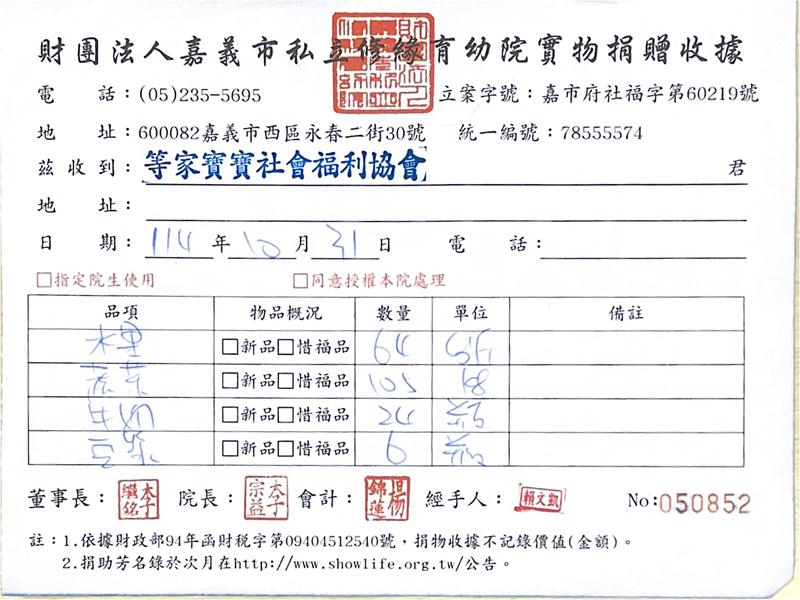 財團法人嘉義市私立修緣育幼院實物捐贈收據
電 話：(05)235-5695 立案字號：嘉市府社福字第60219號
地 址：600082嘉義市西區永春二街30號 統一編號：78555574
茲收到：等家寶寶社會福利協會 君
地 址：
日 期：114年10月31日 電 話：
□指定院生使用 □同意授權本院處理
品項 物品概況 數量 單位 備註
□新品□惜福品 64
□新品□惜福品 105
□新品□惜福品 24
□新品□惜福品 6
董事長： 院長： 會計： 經手人：賴文凱 No:050852
註：1.依據財政部94年函財税字第09404512540號，捐物收據不記錄價值(金額)。
2.捐助芳名錄於次月在http://www.showlife.org.tw/公告。